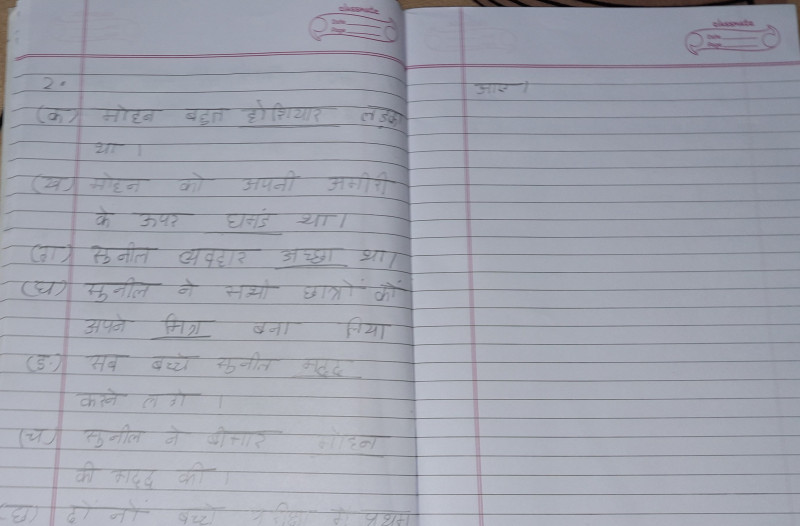 classmate
Date
Page
2.
(क) मोहन बहुत होशियार लड़का
था ।
(ख) मोहन को अपनी अमीरी
के ऊपर घमंड था।
(ग) सुनील व्यवहार अच्छा था।
(घ) सुनील ने सभी छात्रों को
अपने मित्र बना लिया
(ङ) सब बच्चे सुनील मदद
करने लगे ।
(च) सुनील ने बीमार मोहन
की मदद की ।
दोनों बच्चे परीक्षा में प्रथम
classmate
Date
Page
आए ।